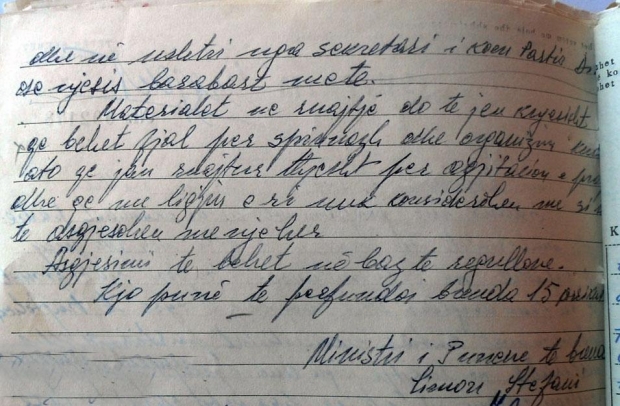 dhe në ushtri nga sekretari i kom Partis
ose njesis barabart me te.
Materialet ne ruajtje do te jen kryesisht
qe behet fjal per spiunazh dhe organizim
ato qe jan ruajtur thjesht per agjitacion e
dhe qe me ligjin e ri nuk konsiderohen me
te asgjesohen menjeher
Asgjesimi te behet në baz te regullave.
Kjo punë te perfundoj brenda 15
Ministri i Puneve te
Simon Stefani